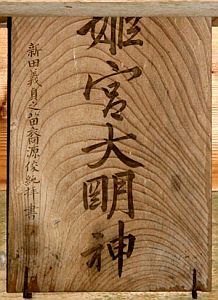 姫宮大明神
新田義貞之苗裔源俊純拝書